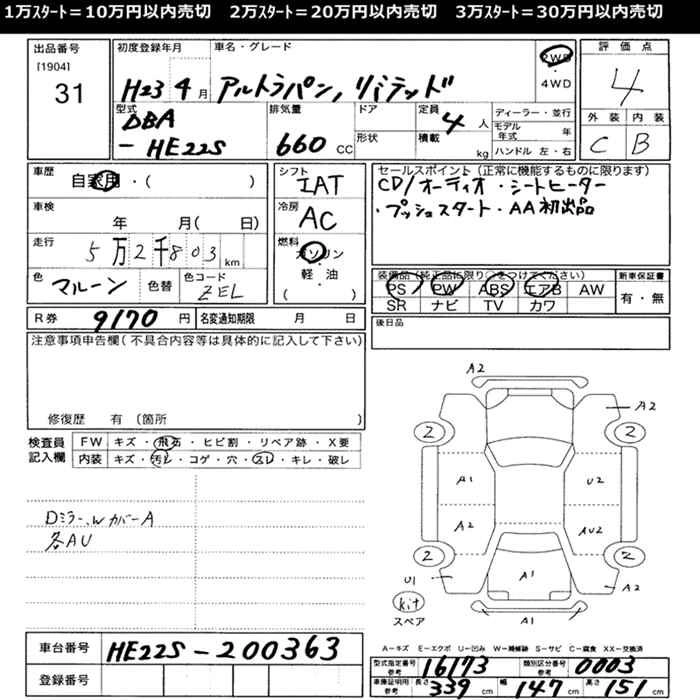 1万ｽﾀｰﾄ＝10万円以内売切　2万ｽﾀｰﾄ＝20万円以内売切　3万ｽﾀｰﾄ＝30万円以内売切
出品番号
[1904]
31
初度登録年月
H23 4月
車名・グレード
アルトラパン，リミテッド
2WD
4WD
評価点
4
外装 内装
C B
型式
DBA
-HE22S
排気量
660 CC
ドア
形状
定員
4人
積載
kg
ディーラー・並行
モデル年式 年
ハンドル 左・右
車歴
自家用・( )
車検
年 月( 日)
走行
5万2千803km
色
マルーン
色替
色コード
ZEL
シフト
IAT
冷房
AC
燃料
ガソリン
・
軽・油
( )
セールスポイント(正常に機能するものに限ります)
CD/オーディオ・シートヒーター
・プッシュスタート・AA初出品
装備品(純正品に限り○をつけてください)
PS PW ABS エアB AW
SR ナビ TV カワ
新車保証書
有・無
R券 9170円
名変通知期限 月 日
後日品
注意事項申告欄(不具合内容等は具体的に記入して下さい)
修復歴 有 (箇所 )
検査員
記入欄
FW キズ・飛石・ヒビ割・リペア跡・X要
内装 キズ・汚レ・コゲ・穴・スレ・キレ・破レ
Dミラー、Wカバー A
各AU
A2
A2
2
2
A1
U2
A2
AU2
2
2
U1
A1
A2
kit
スペア
A1
車台番号
HE22S-200363
登録番号
A－キズ E－エクボ U－凹み W－補修跡 S－サビ C－腐食 XX－交換済
型式指定番号
参考
16173
類別区分番号
参考
0003
車庫証明用
参考
長さ 339cm
幅 147cm
高さ 151cm